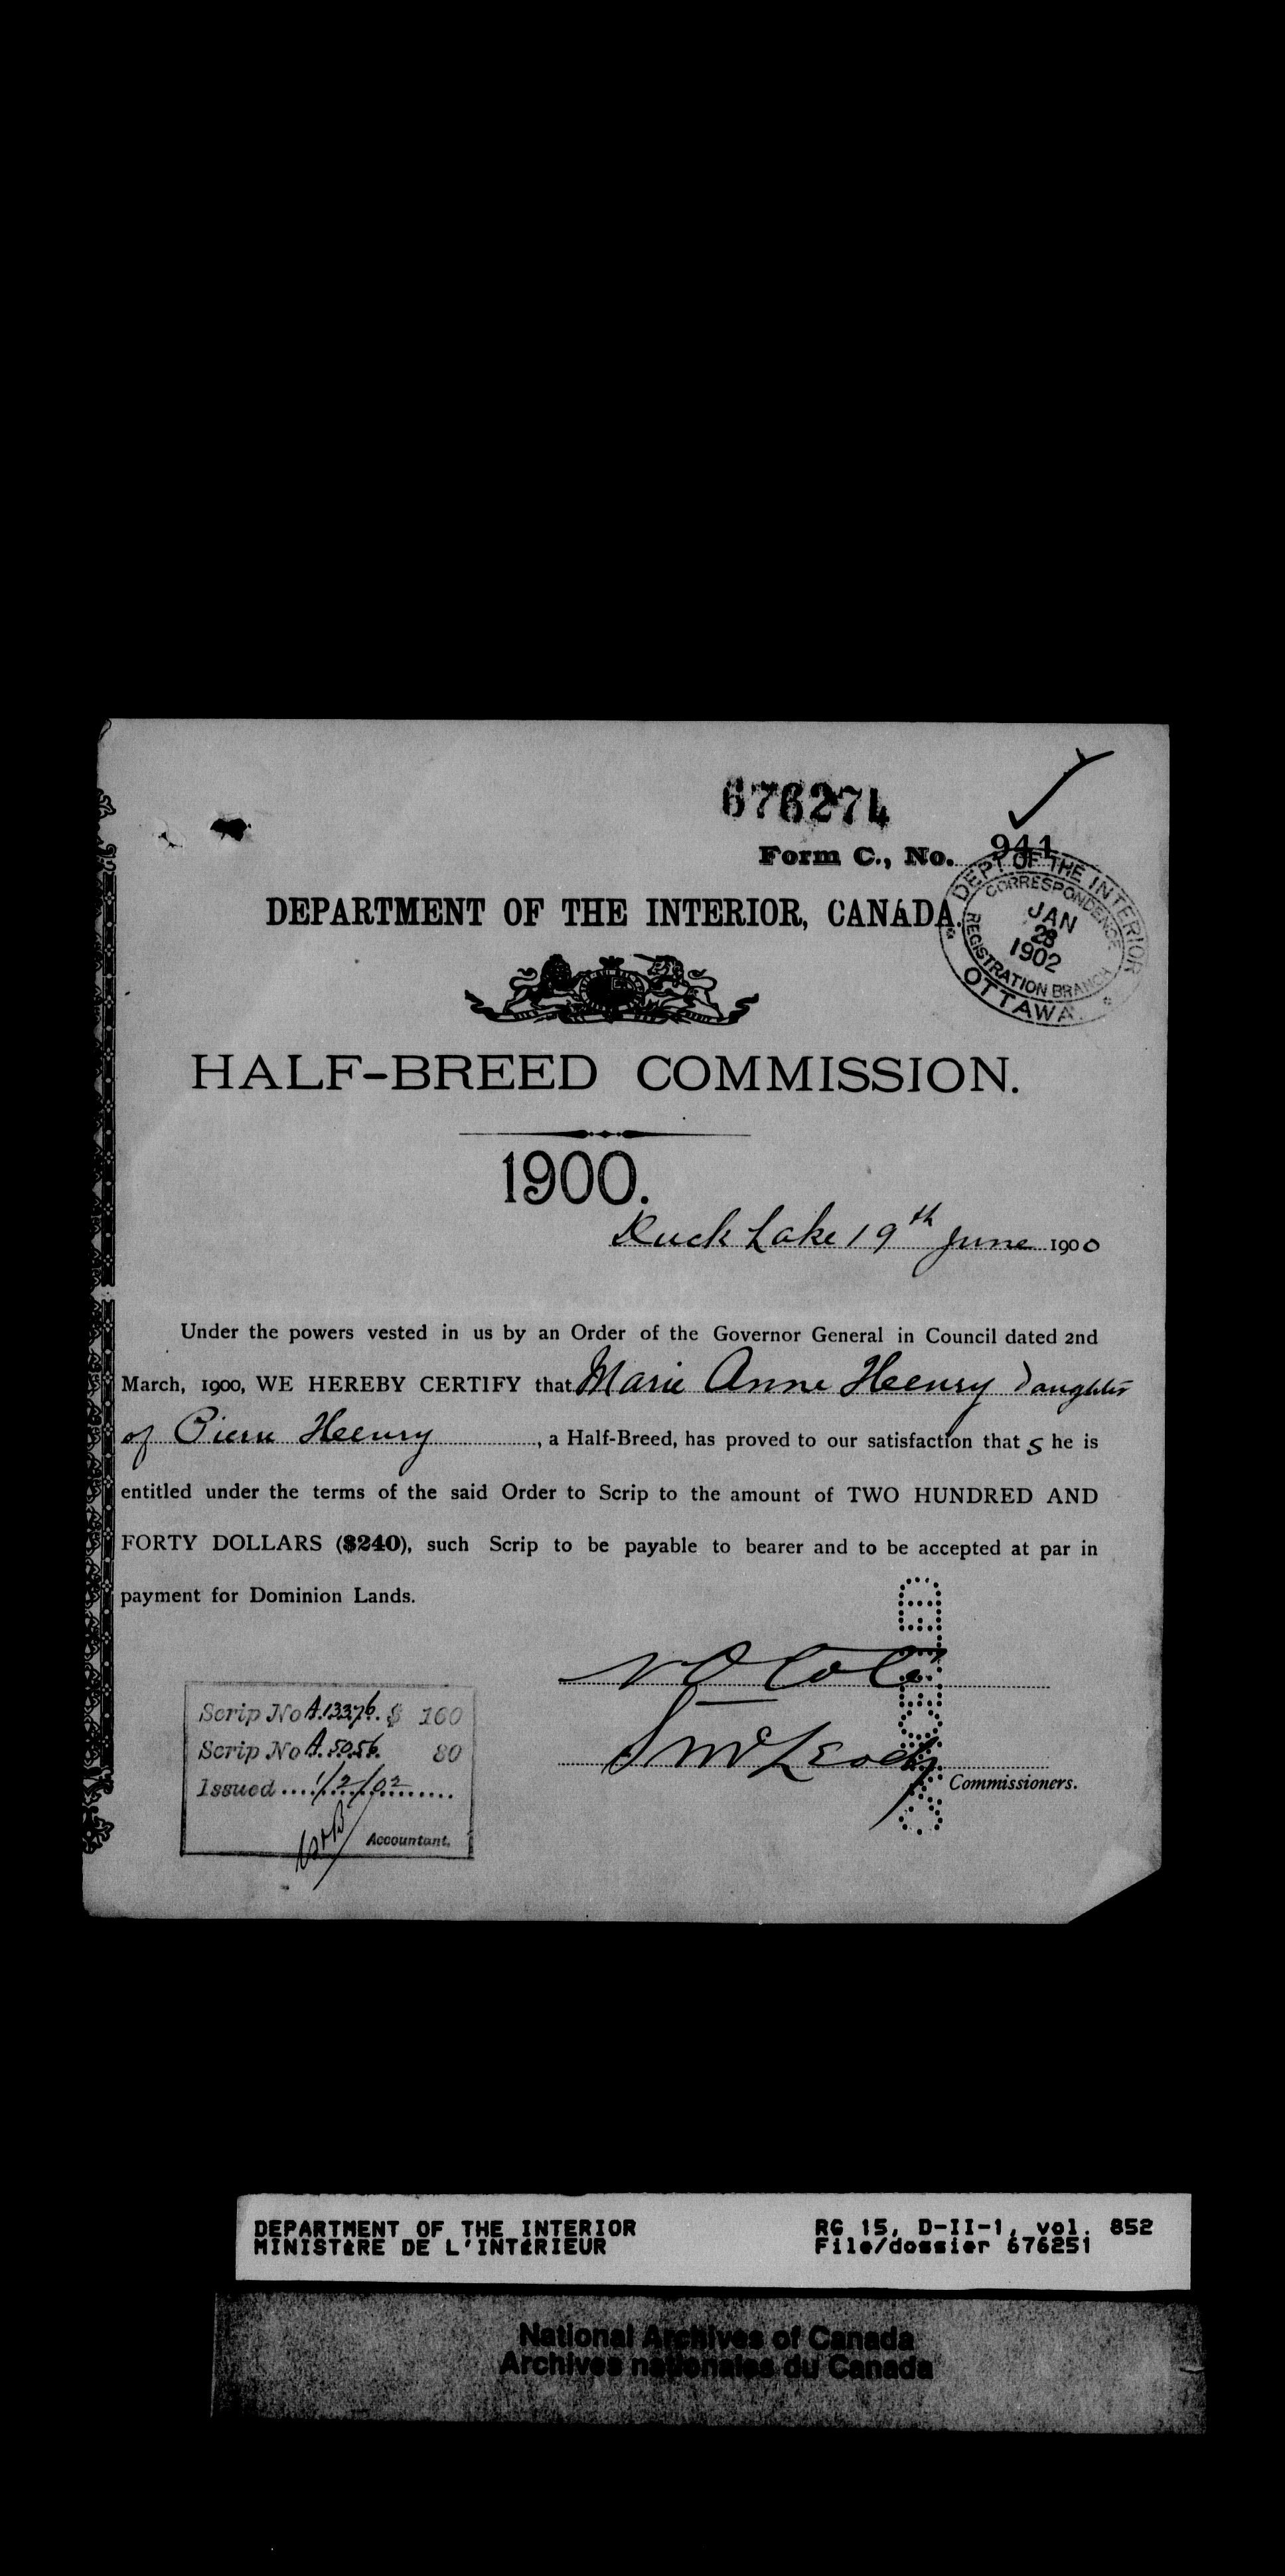 676274
Form C., No. 941
DEPT OF THE INTERIOR
CORRESPONDENCE
JAN
28
1902
REGISTRATION BRANCH
OTTAWA.
DEPARTMENT OF THE INTERIOR, CANADA.
HALF-BREED COMMISSION.
1900.
Duck Lake 19th June 1900
Under the powers vested in us by an Order of the Governor General in Council dated 2nd
March, 1900, WE HEREBY CERTIFY that Marie Anne Heenry daughter
of Pierre Heenry, a Half-Breed, has proved to our satisfaction that s he is
entitled under the terms of the said Order to Scrip to the amount of TWO HUNDRED AND
FORTY DOLLARS ($240), such Scrip to be payable to bearer and to be accepted at par in
payment for Dominion Lands.
Scrip No A.13376. $ 160
Scrip No A.5056. 80
Issued 1/2/02
Accountant.
Commissioners.
DEPARTMENT OF THE INTERIOR
MINISTÈRE DE L'INTÉRIEUR
RG 15, D-II-1, vol. 852
File/dossier 676251
National Archives of Canada
Archives nationales du Canada